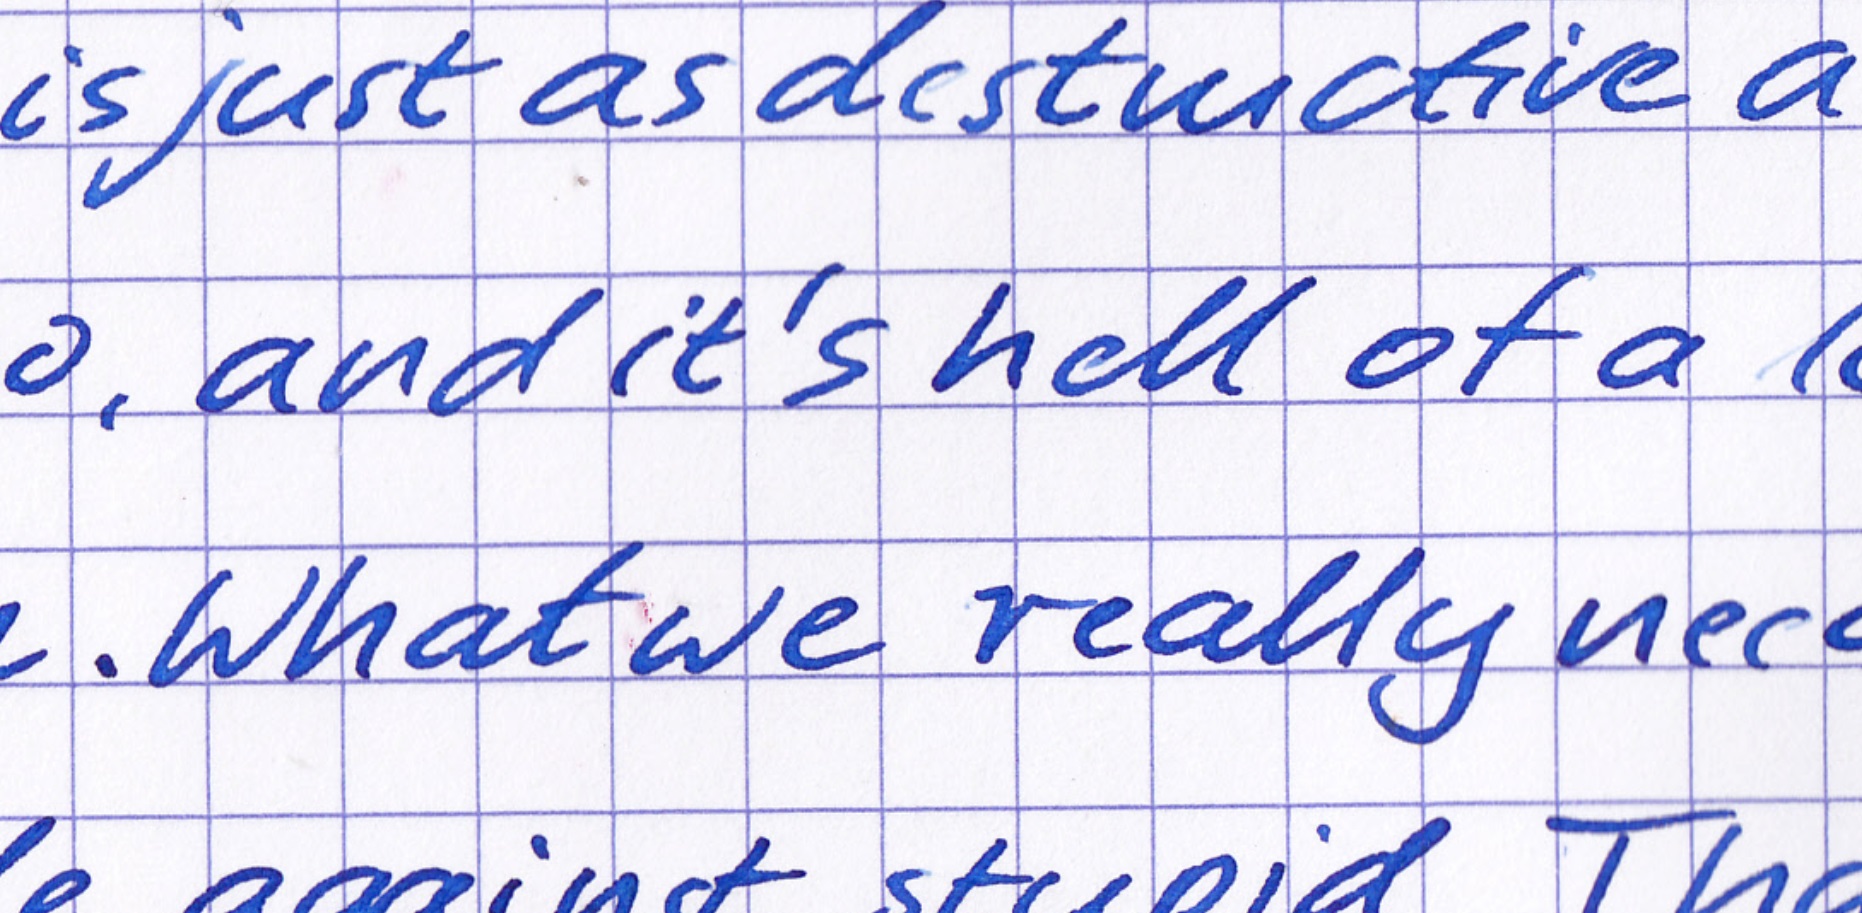 is just as destructive a
o, and it's hell of a
. What we really
against stupid Tha